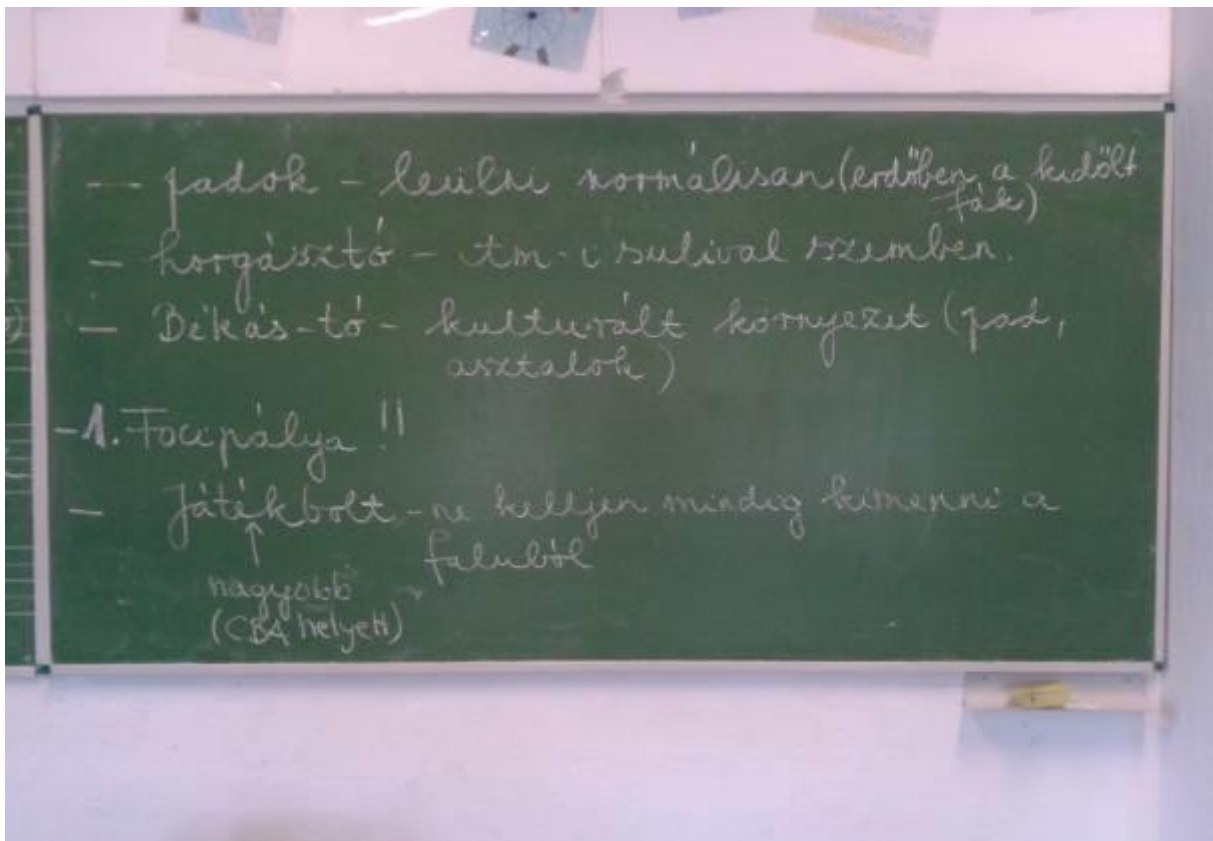 — padok - leülni normálisan (erdőben a kidőlt
fák)
— horgásztó - tm-i sulival szemben.
— Békás-tó - kulturált környezet (pad,
asztalok)
-1. Focipálya !!
— Játékbolt - ne kelljen mindig kimenni a
faluból
↑
nagyobb
(CBA helyett)